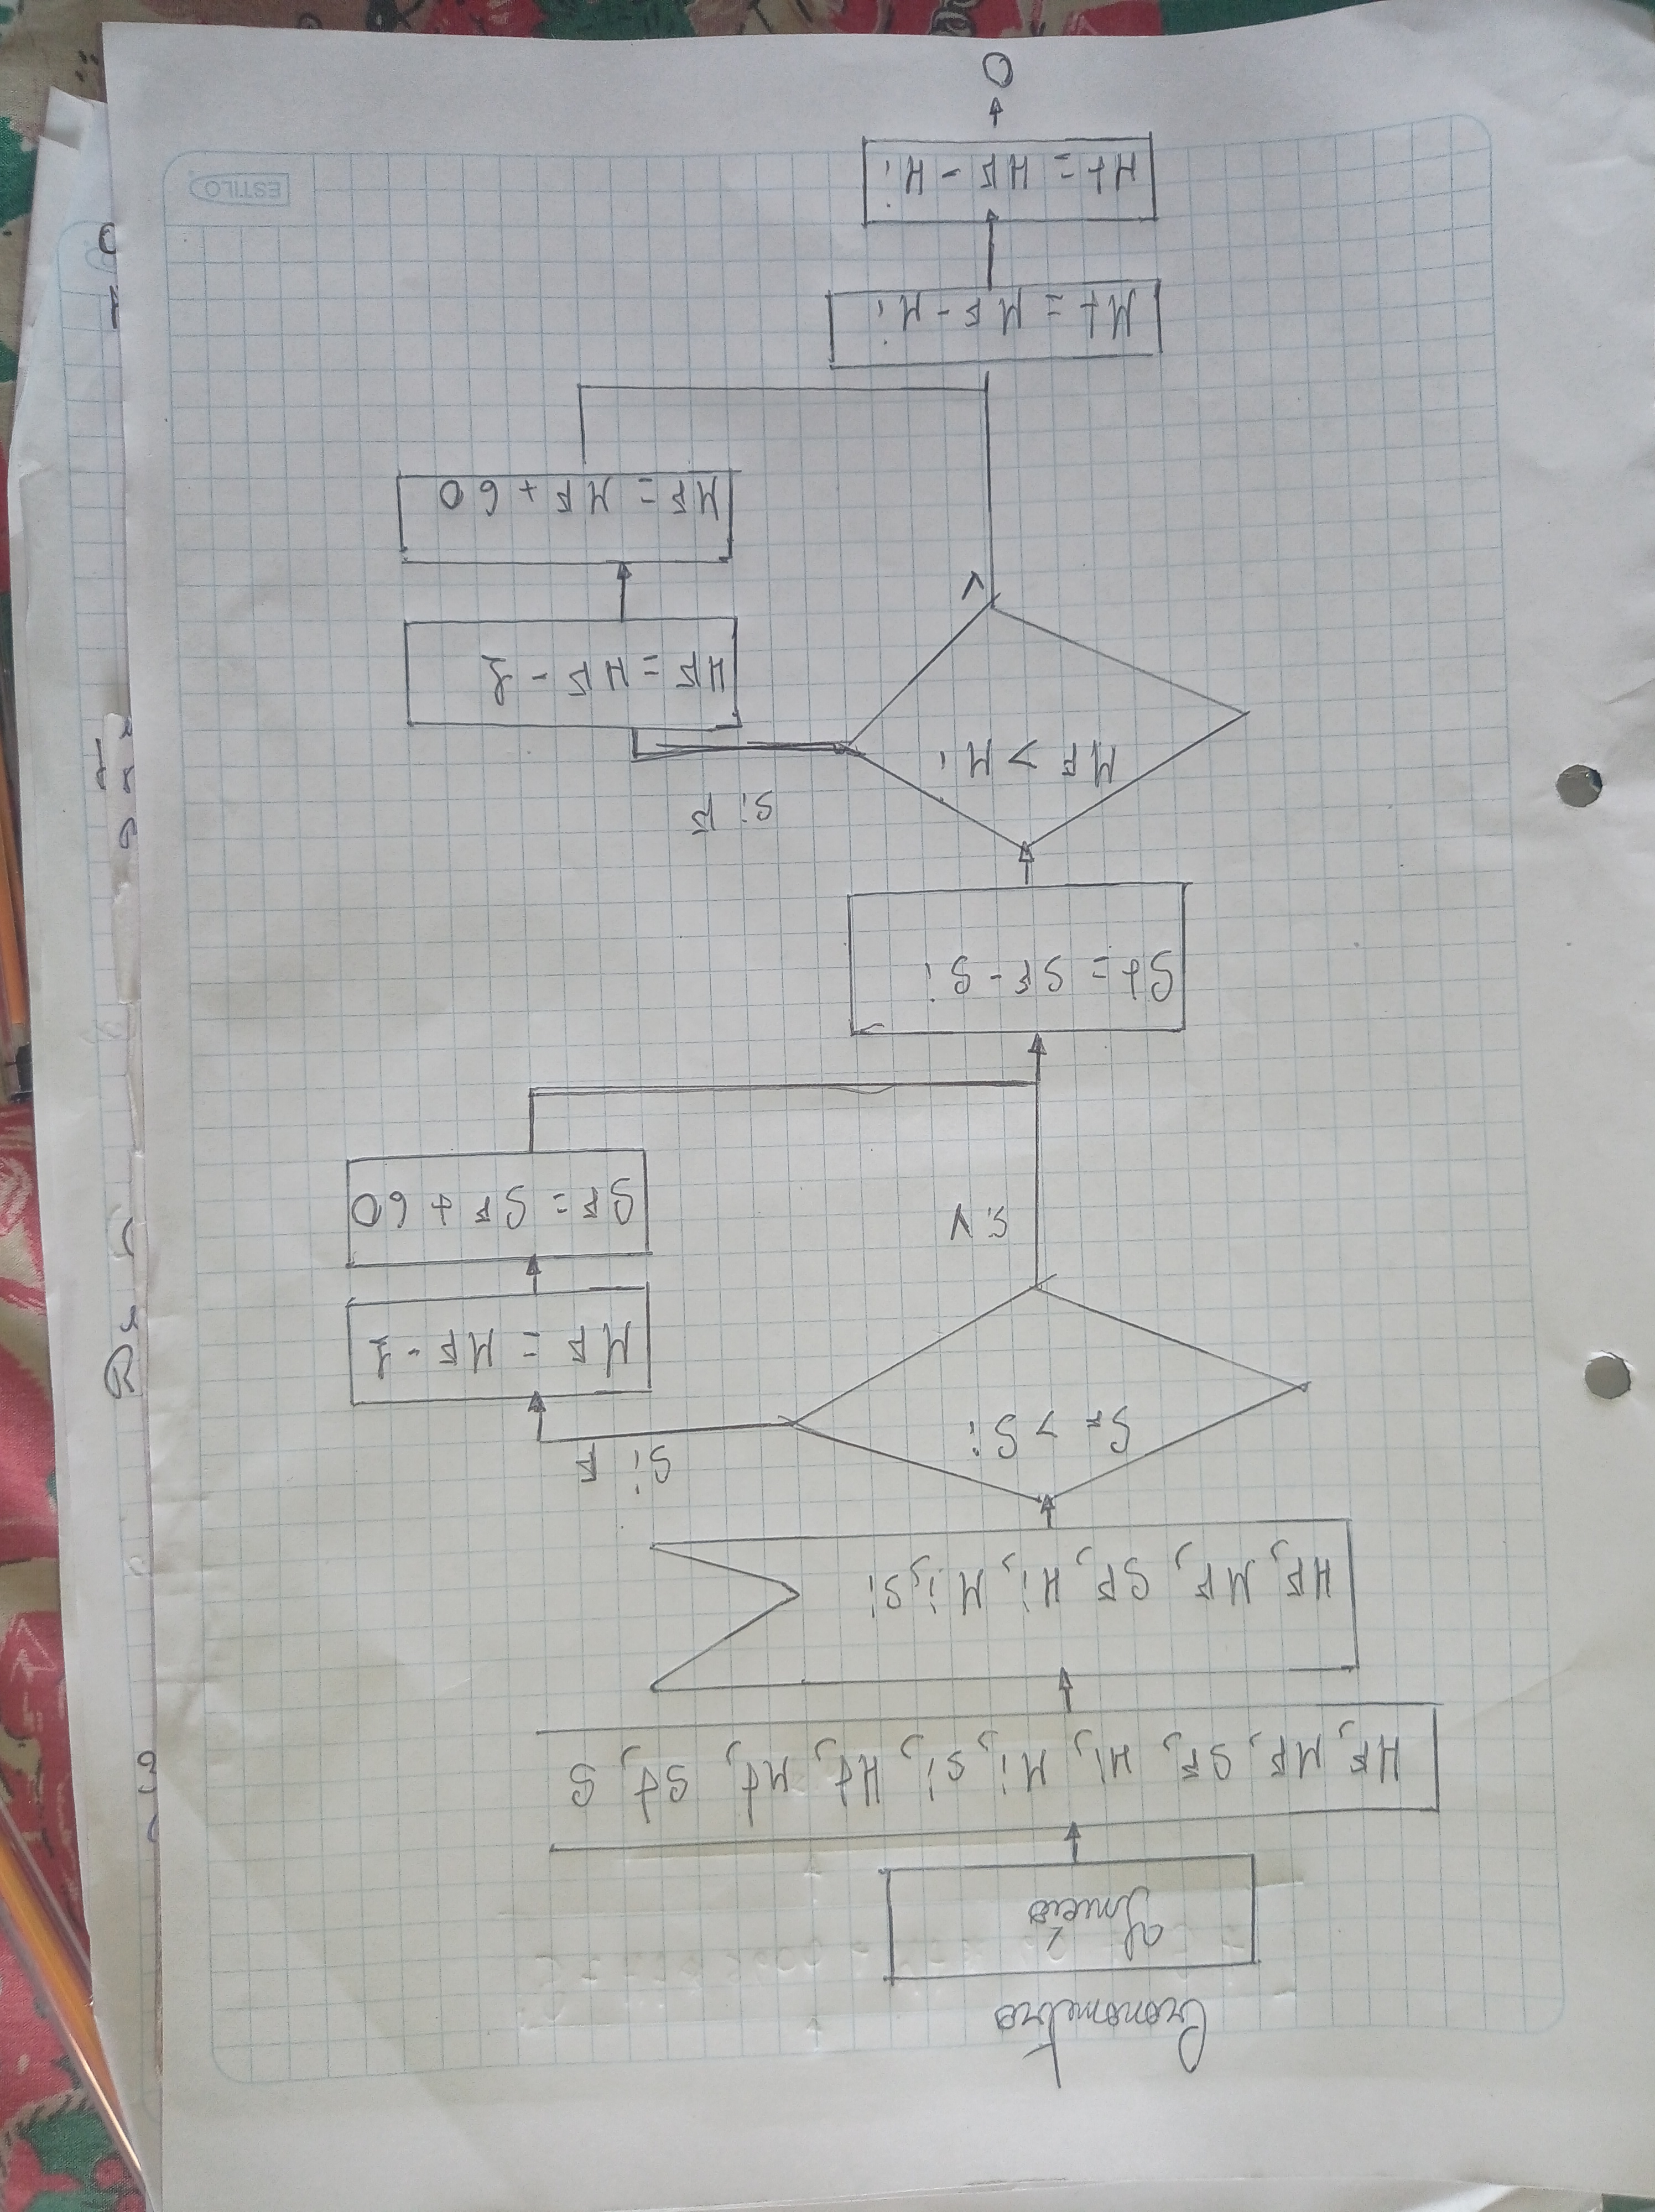 Cronometro
al
Inicio
HF, MF, SF, Hi, Mi, Si, Ht, Mt, St, S
HF, MF, SF, Hi, Mi, Si
SF > Si
Si F
MF = MF - 1
SF = SF + 60
Si V
St = SF - Si
MF > Mi
Si F
HF = HF - 1
V
MF = MF + 60
Mt = MF - Mi
Ht = HF - Hi
O
ESTILO